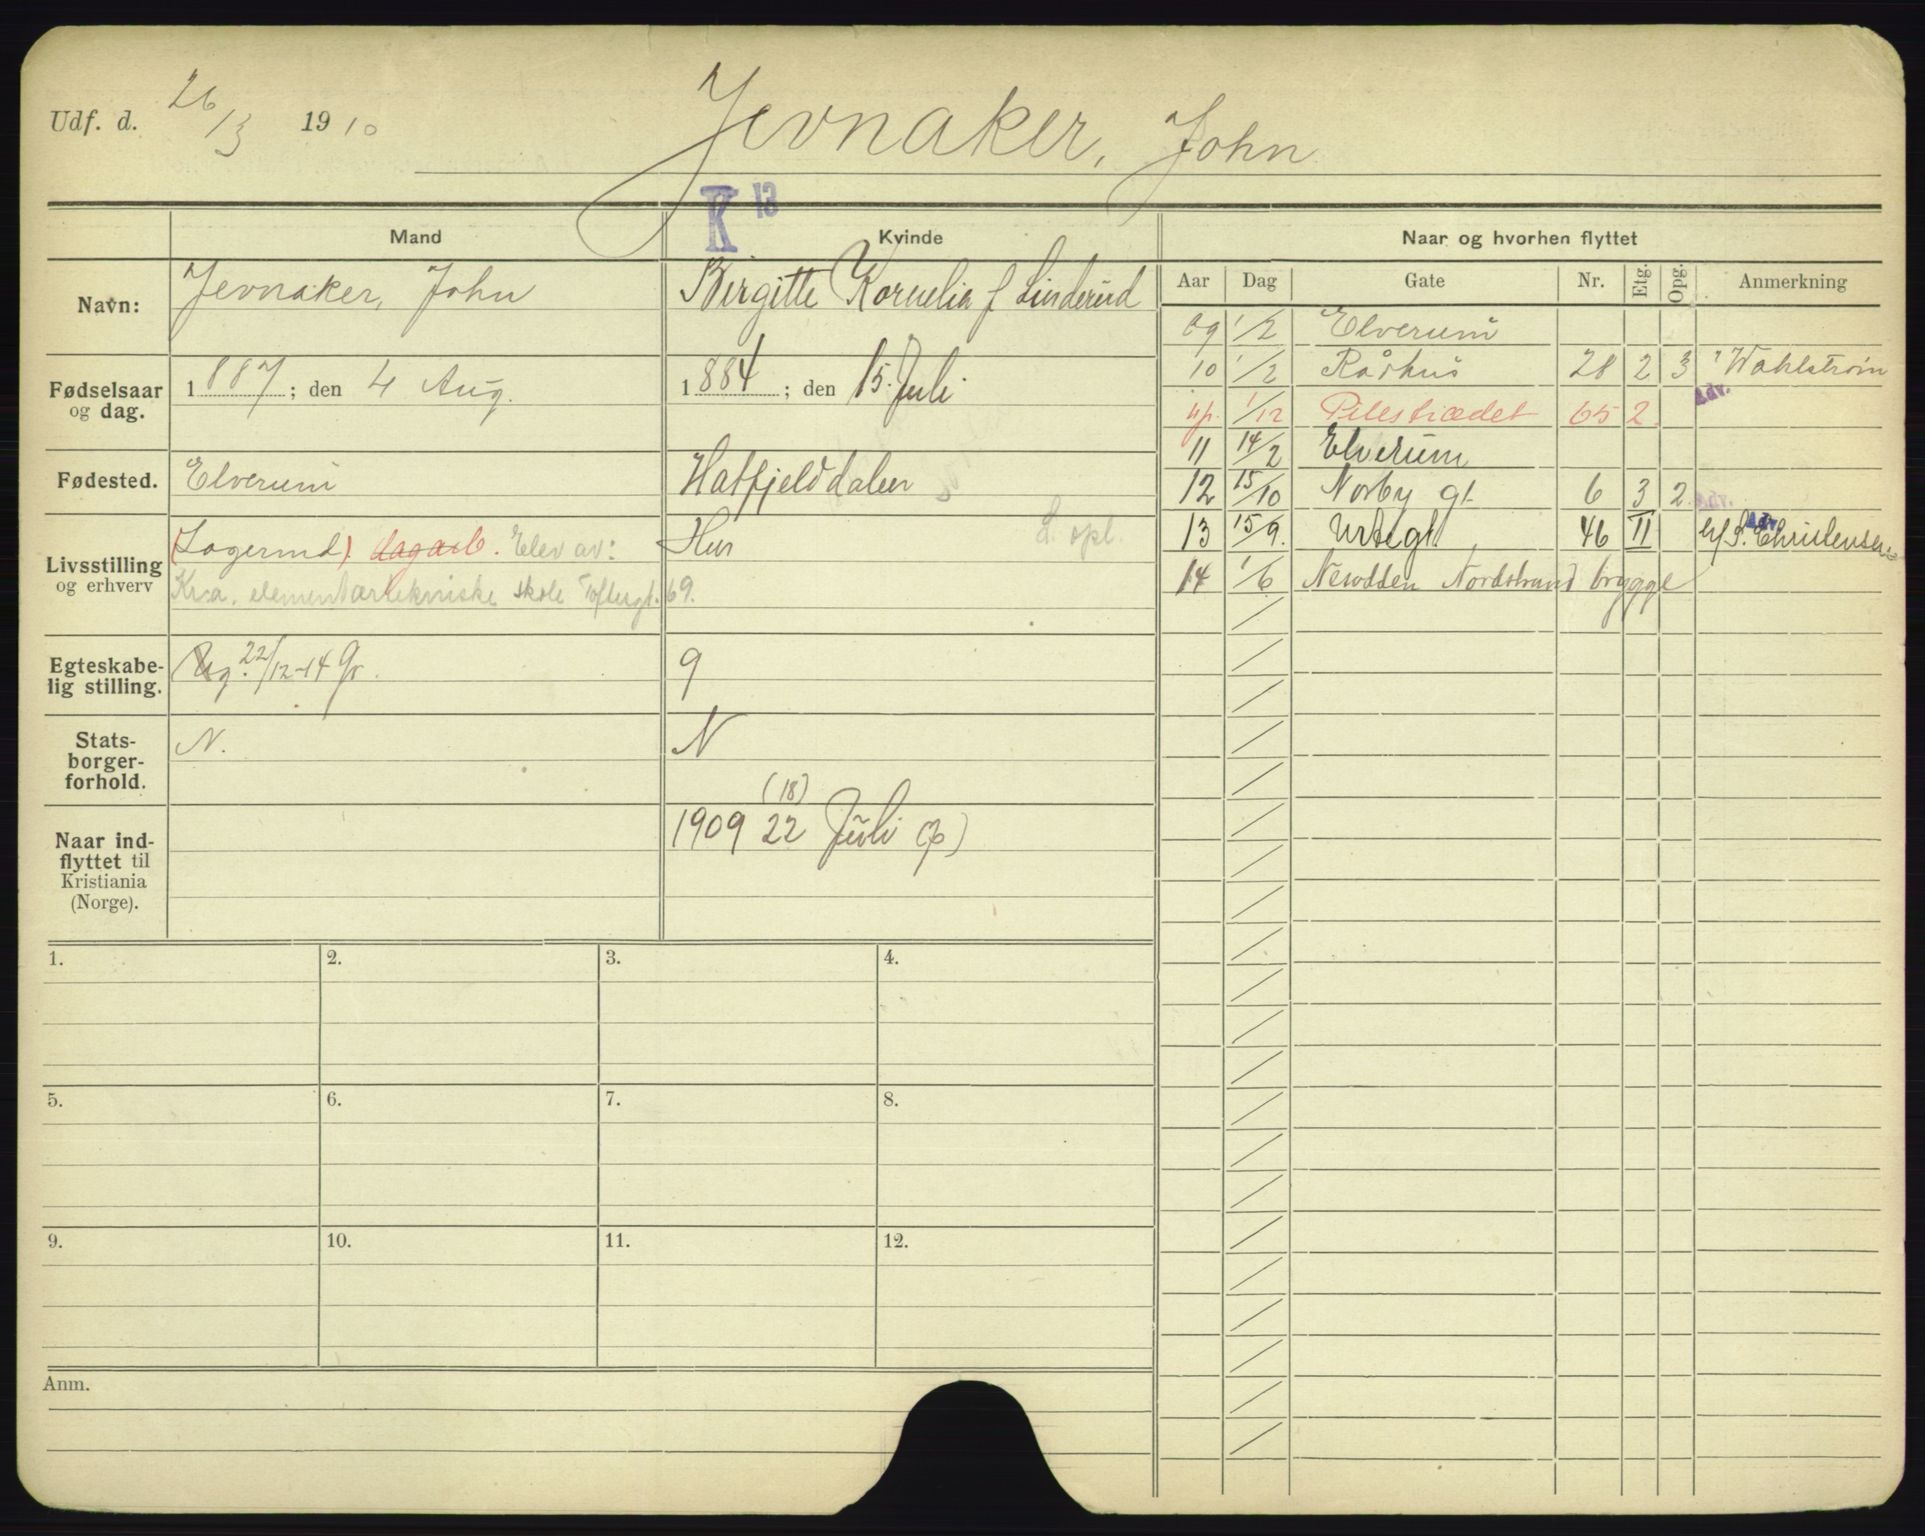 Udf. d. 26/3 1910
Jevnaker, John
K 13
Mand
Kvinde
Naar og hvorhen flyttet
Navn:
Jevnaker, John
Birgitte Kornelia f Linderud
Fødselsaar
og dag.
1887; den 4 Aug.
1884; den 15. Juli
Fødested.
Elverum
Hatfjelddalen
Livsstilling
og erhverv
(Lagermd) dagarb. Elev av:
Kr.a. elementærtekniske skole Toftesgt. 69.
Hus
L. opl.
Egteskabe-
lig stilling.
Ug. 22/12-14 Gr.
g
Stats-
borger-
forhold.
N.
N
Naar ind-
flyttet til
Kristiania
(Norge).
(18)
1909 22 Juli
Aar Dag Gate Nr. Etg. Opg. Anmerkning
09 1/2 Elverum
10 1/2 Rådhus 28 2 3 Wahlstrøm
Adv.
1/12 Pilestrædet 65 2
11 14/2 Elverum
12 15/10 Norby gt 6 3 2 Adv.
13 15/9. Urtegt. 46 II Adv. h/ Christensen
14 1/6 Nesodden Nordstrand brygge
1. 2. 3. 4.
5. 6. 7. 8.
9. 10. 11. 12.
Anm.